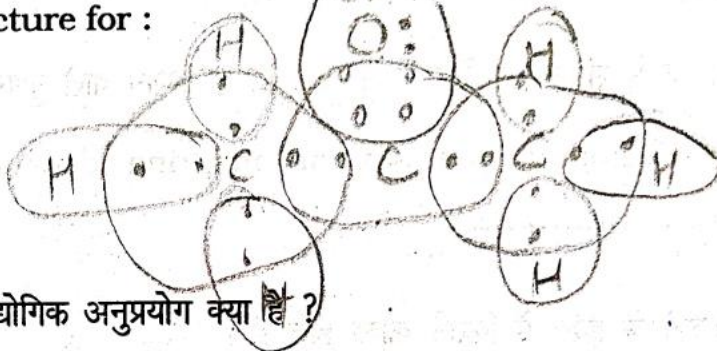 cture for :
H O H
H C C C H
H H
द्योगिक अनुप्रयोग क्या है ?